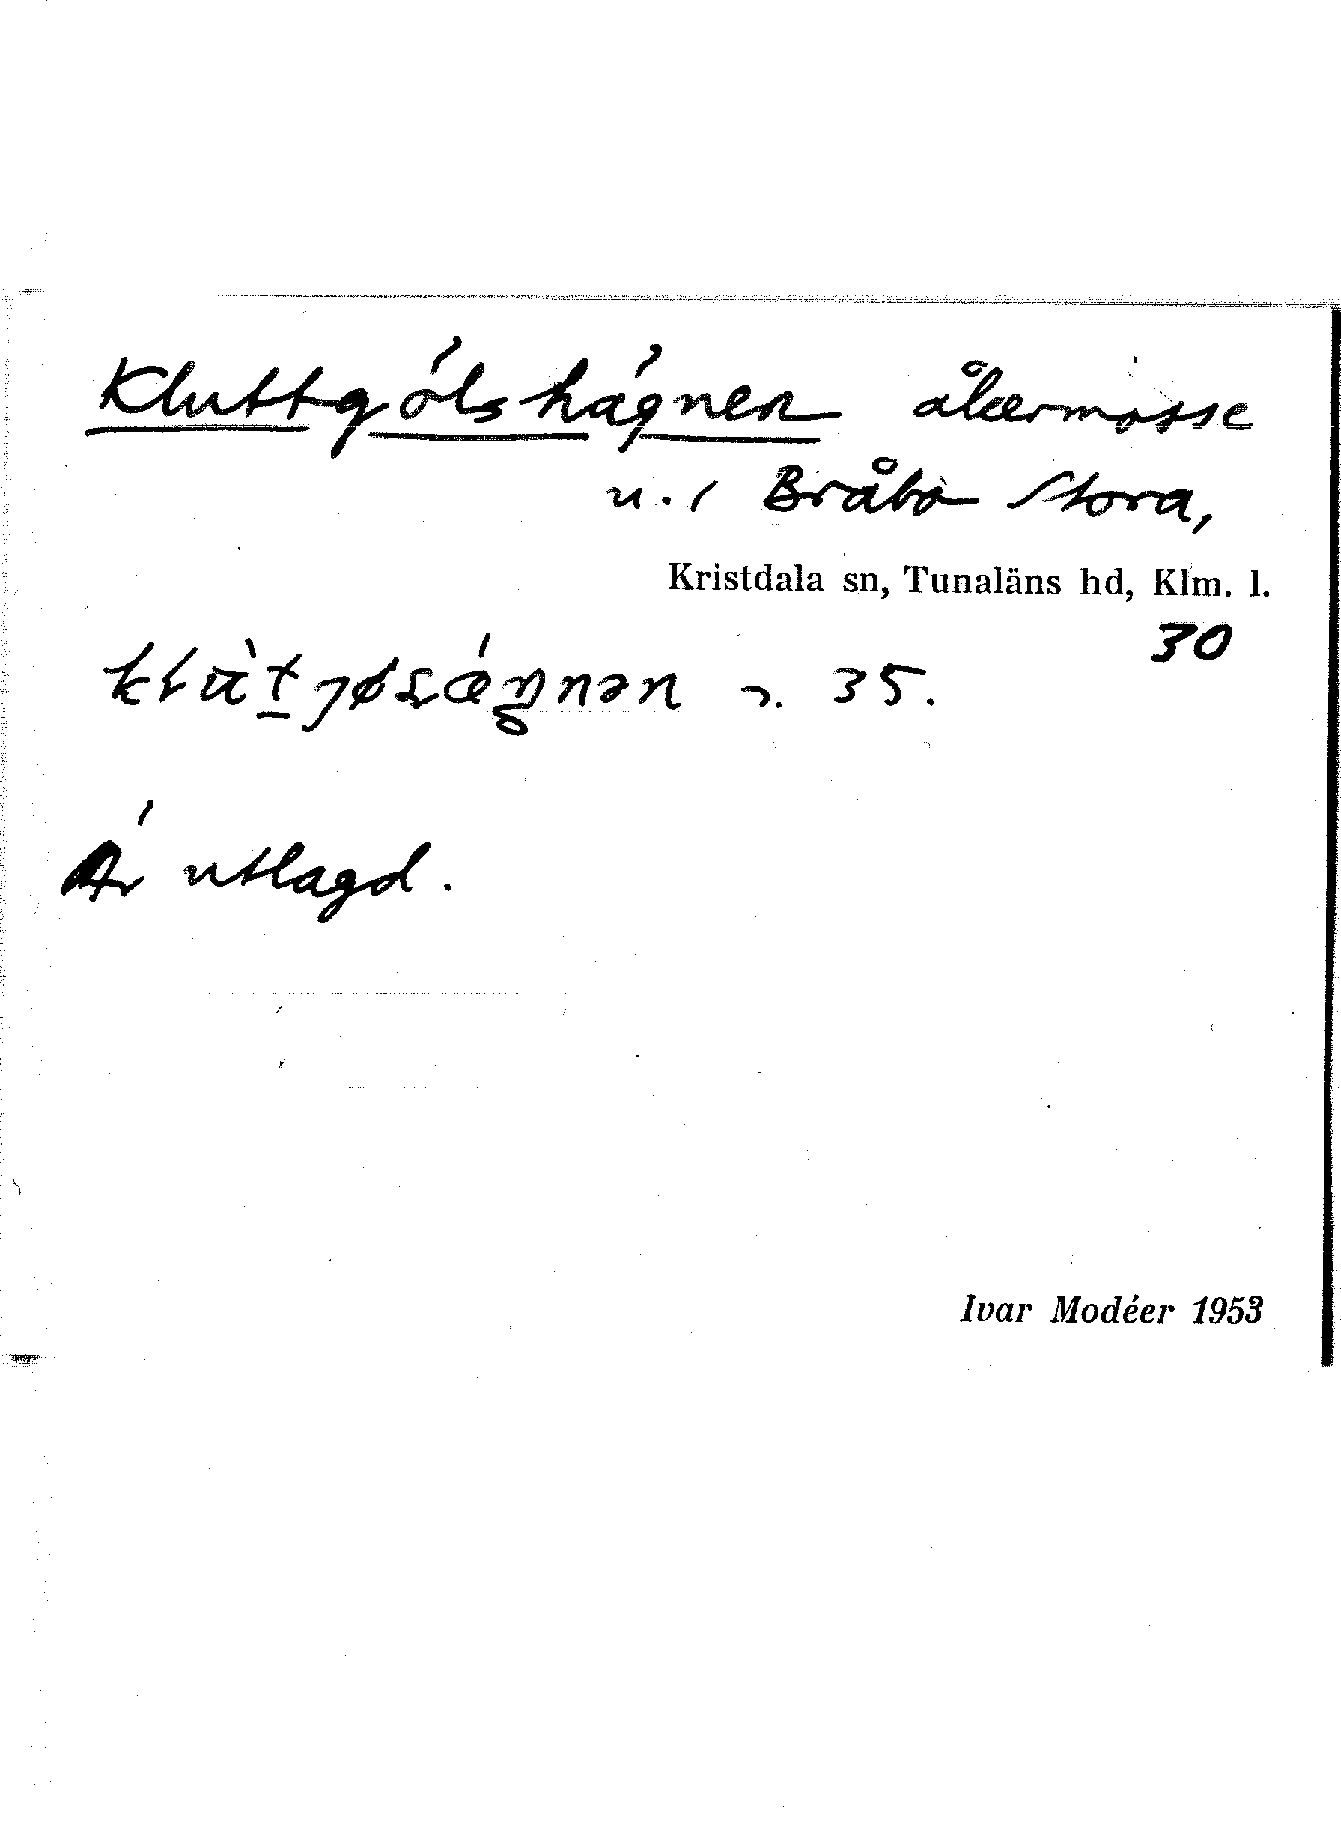 Kluttgölshägnen åkermosse
u. / Bråbo Stora,
Kristdala sn, Tunaläns hd, Klm. l.
30
35.
Är utlagd.
Ivar Modéer 1953